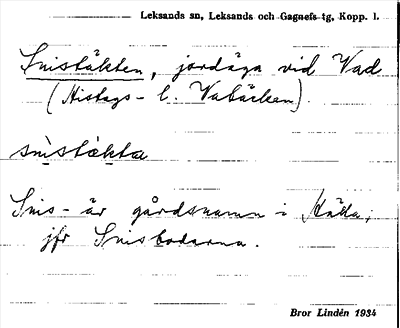 Leksands sn, Leksands och Gagnefs tg, Kopp. l.
Snistäkten, jordäga vid Vad
(Histags- l. Vabäcken).
snistækta
Snis- är gårdsnamn i Häda;
jfr Snisbodarna.
Bror Lindén 1934